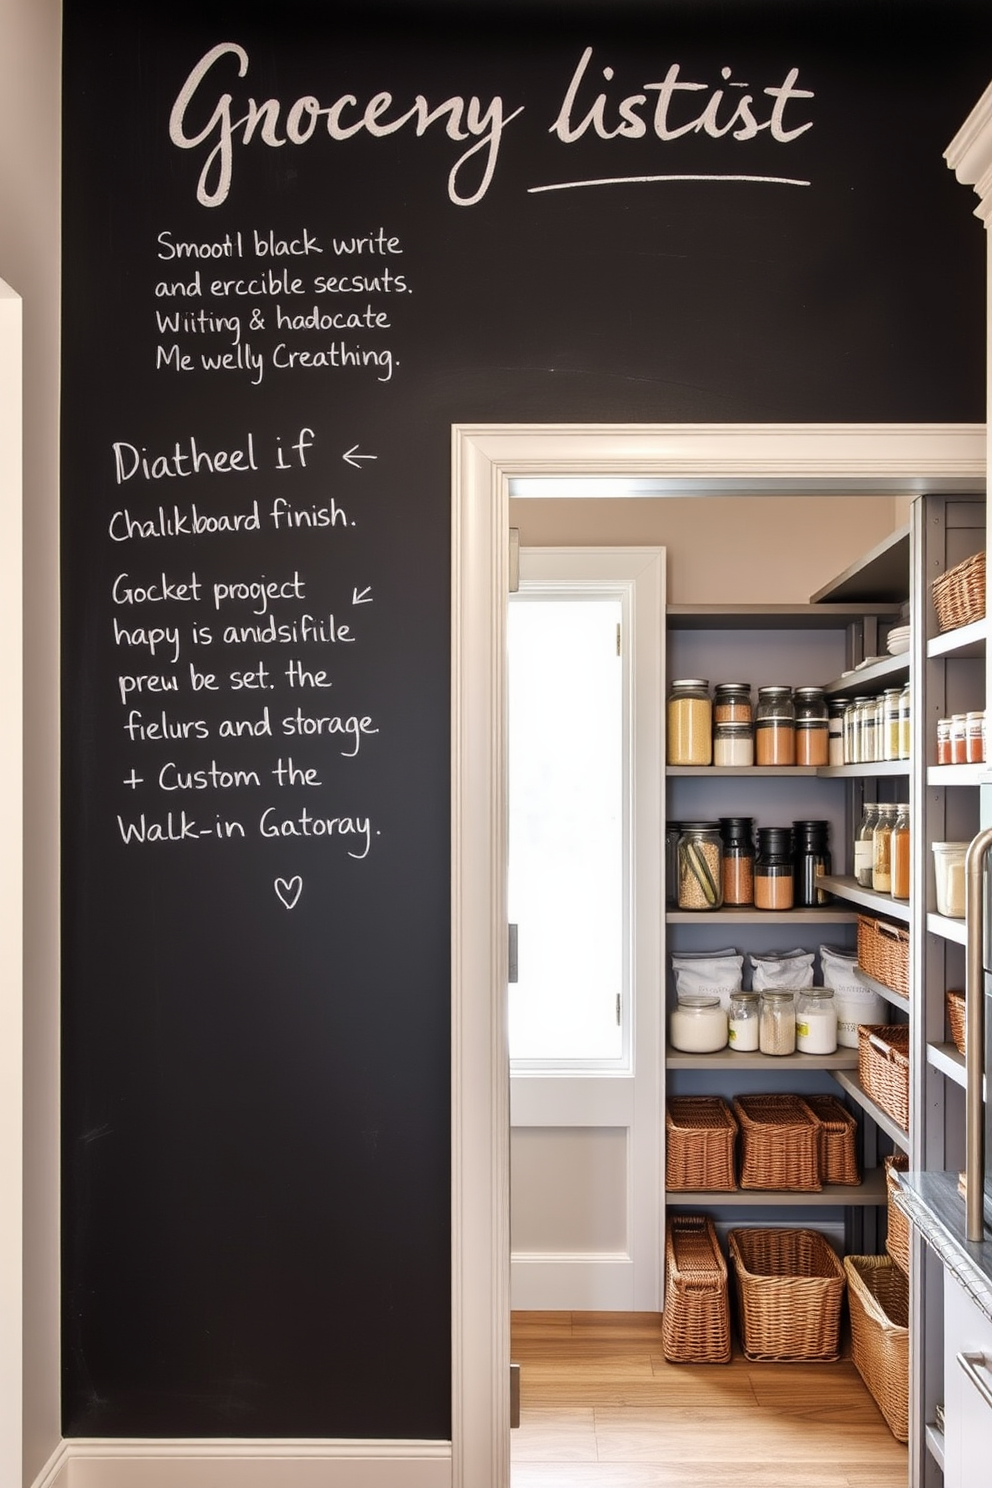 Gnoceny listist
Smootl black write
and erccible secsuts.
Wiiting & hadocate
Me welly Creathing.
Diatheel if ←
Chalikboard finish.
Gocket prooject ↙
hapy is anidsifiile
prew be set. the
fielurs and storage.
+ Custom the
Walk-in Gatoray.